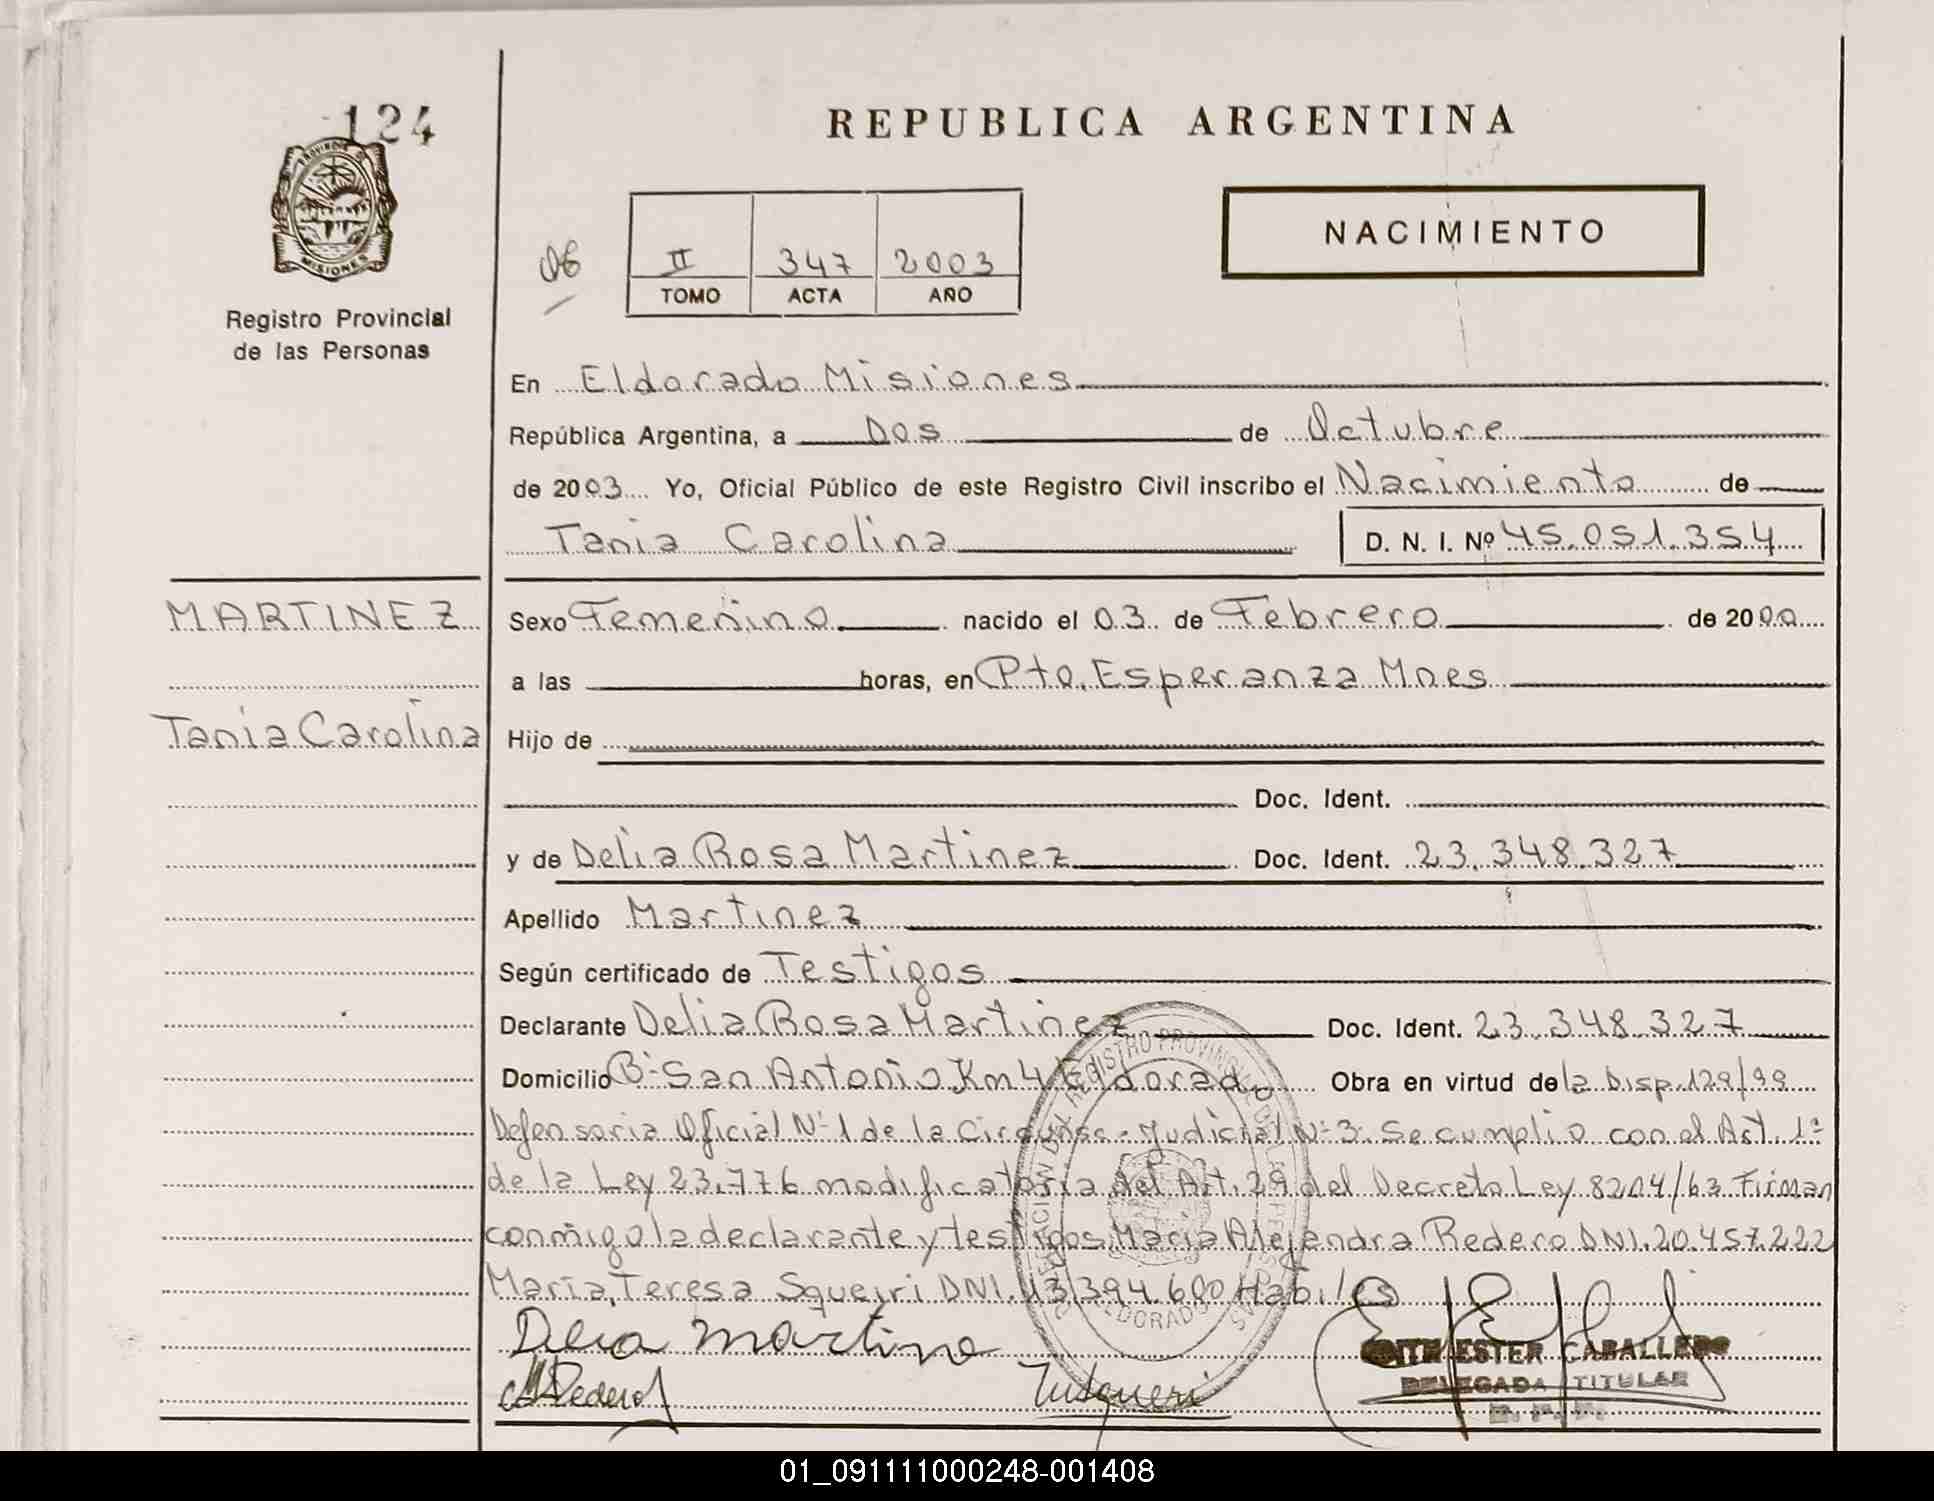 124
PROVINCIA DE
MISIONES
Registro Provincial
de las Personas
REPUBLICA ARGENTINA
NACIMIENTO
II 347 2003
TOMO ACTA AÑO
En Eldorado Misiones
República Argentina, a Dos de Octubre
de 2003 Yo, Oficial Público de este Registro Civil inscribo el Nacimiento de
Tania Carolina D. N. I. Nº 45.051.354
MARTINEZ
Tania Carolina
Sexo Femenino nacido el 03 de Febrero de 2000
a las horas, en Pto. Esperanza Mnes
Hijo de
Doc. Ident.
y de Delia Rosa Martinez Doc. Ident. 23.348.327
Apellido Martinez
Según certificado de Testigos
Declarante Delia Rosa Martinez Doc. Ident. 23.348.327
Domicilio Bº San Antonio Km 4 Eldorado Obra en virtud de la Disp. 129/99
Defensoria Oficial Nº 1 de la Circunsc. Judicial Nº 3. Se cumplio con el Art. 1º
de la Ley 23.776 modificatoria del Art. 29 del Decreto Ley 8204/63 Firman
conmigo la declarante y testigos Maria Alejandra Redero DNI. 20.457.222
María Teresa Squeiri DNI. 13.394.600 Habiles
Delia Martine
MARedero
ESTER CABALLERO
DELEGADA TITULAR
R. P. P.
01_091111000248-001408